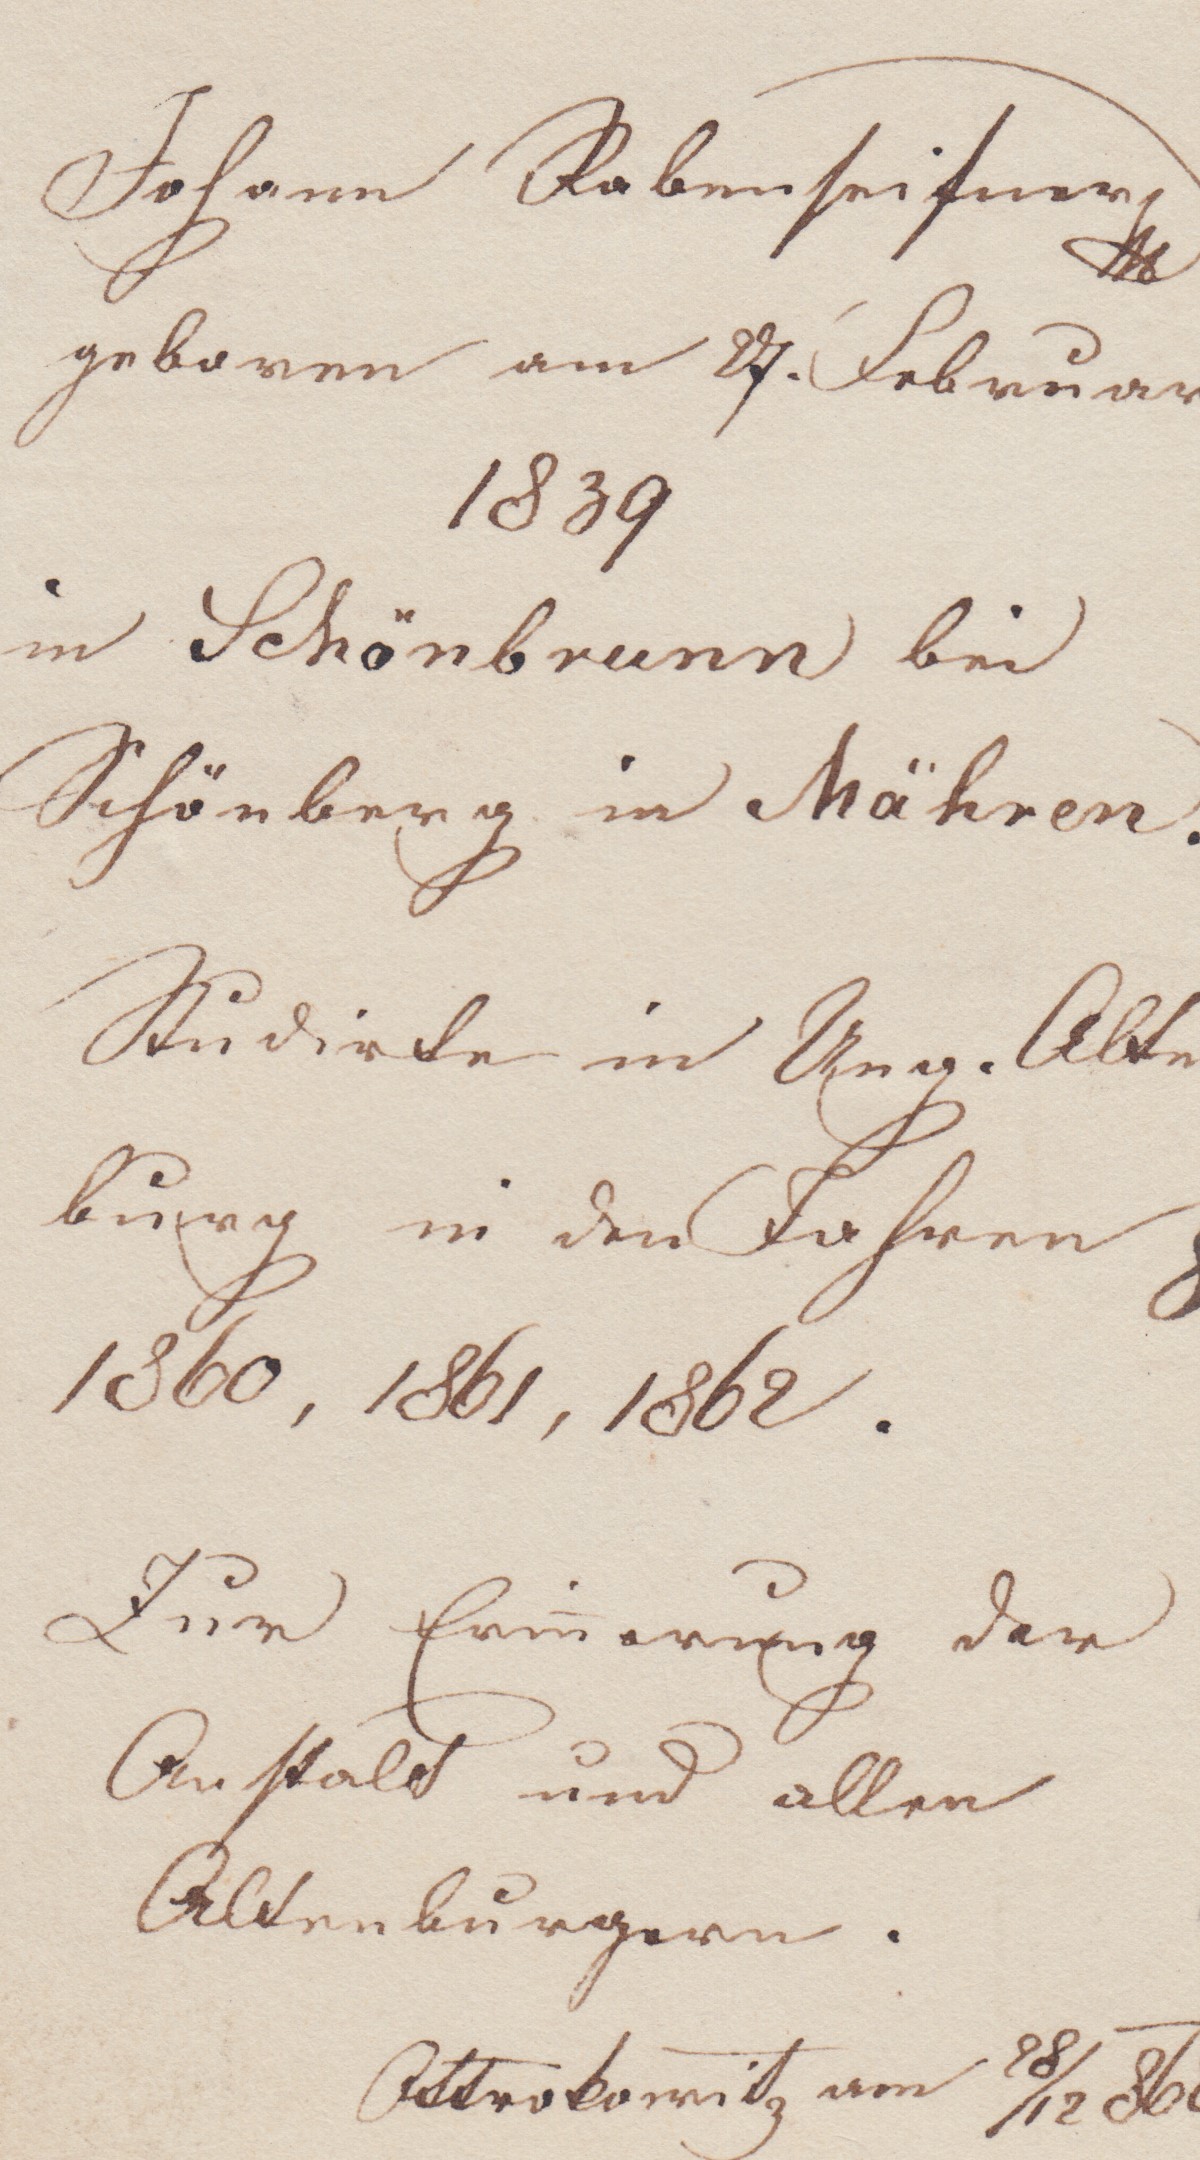 Johann Rabenseifner
geboren am 27. Februar
1839
in Schönbrunn bei
Schönberg in Mähren.
Studirte in Ung. Alten
burg in den Jahren
1860, 1861, 1862.
Zur Erin̄erung der
Anstalt und allen
Altenburgern.
Ottrokowitz am 28/12 86